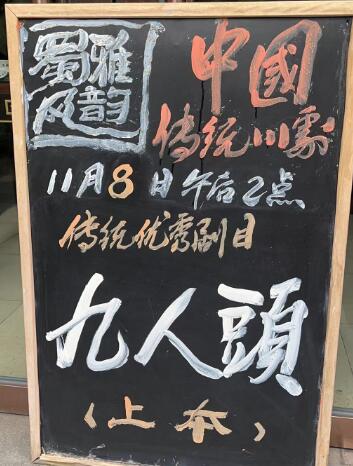 蜀风
雅韵
中國
传统川劇
11月8日午后2点
传统优秀剧目
九人頭
〈上本〉